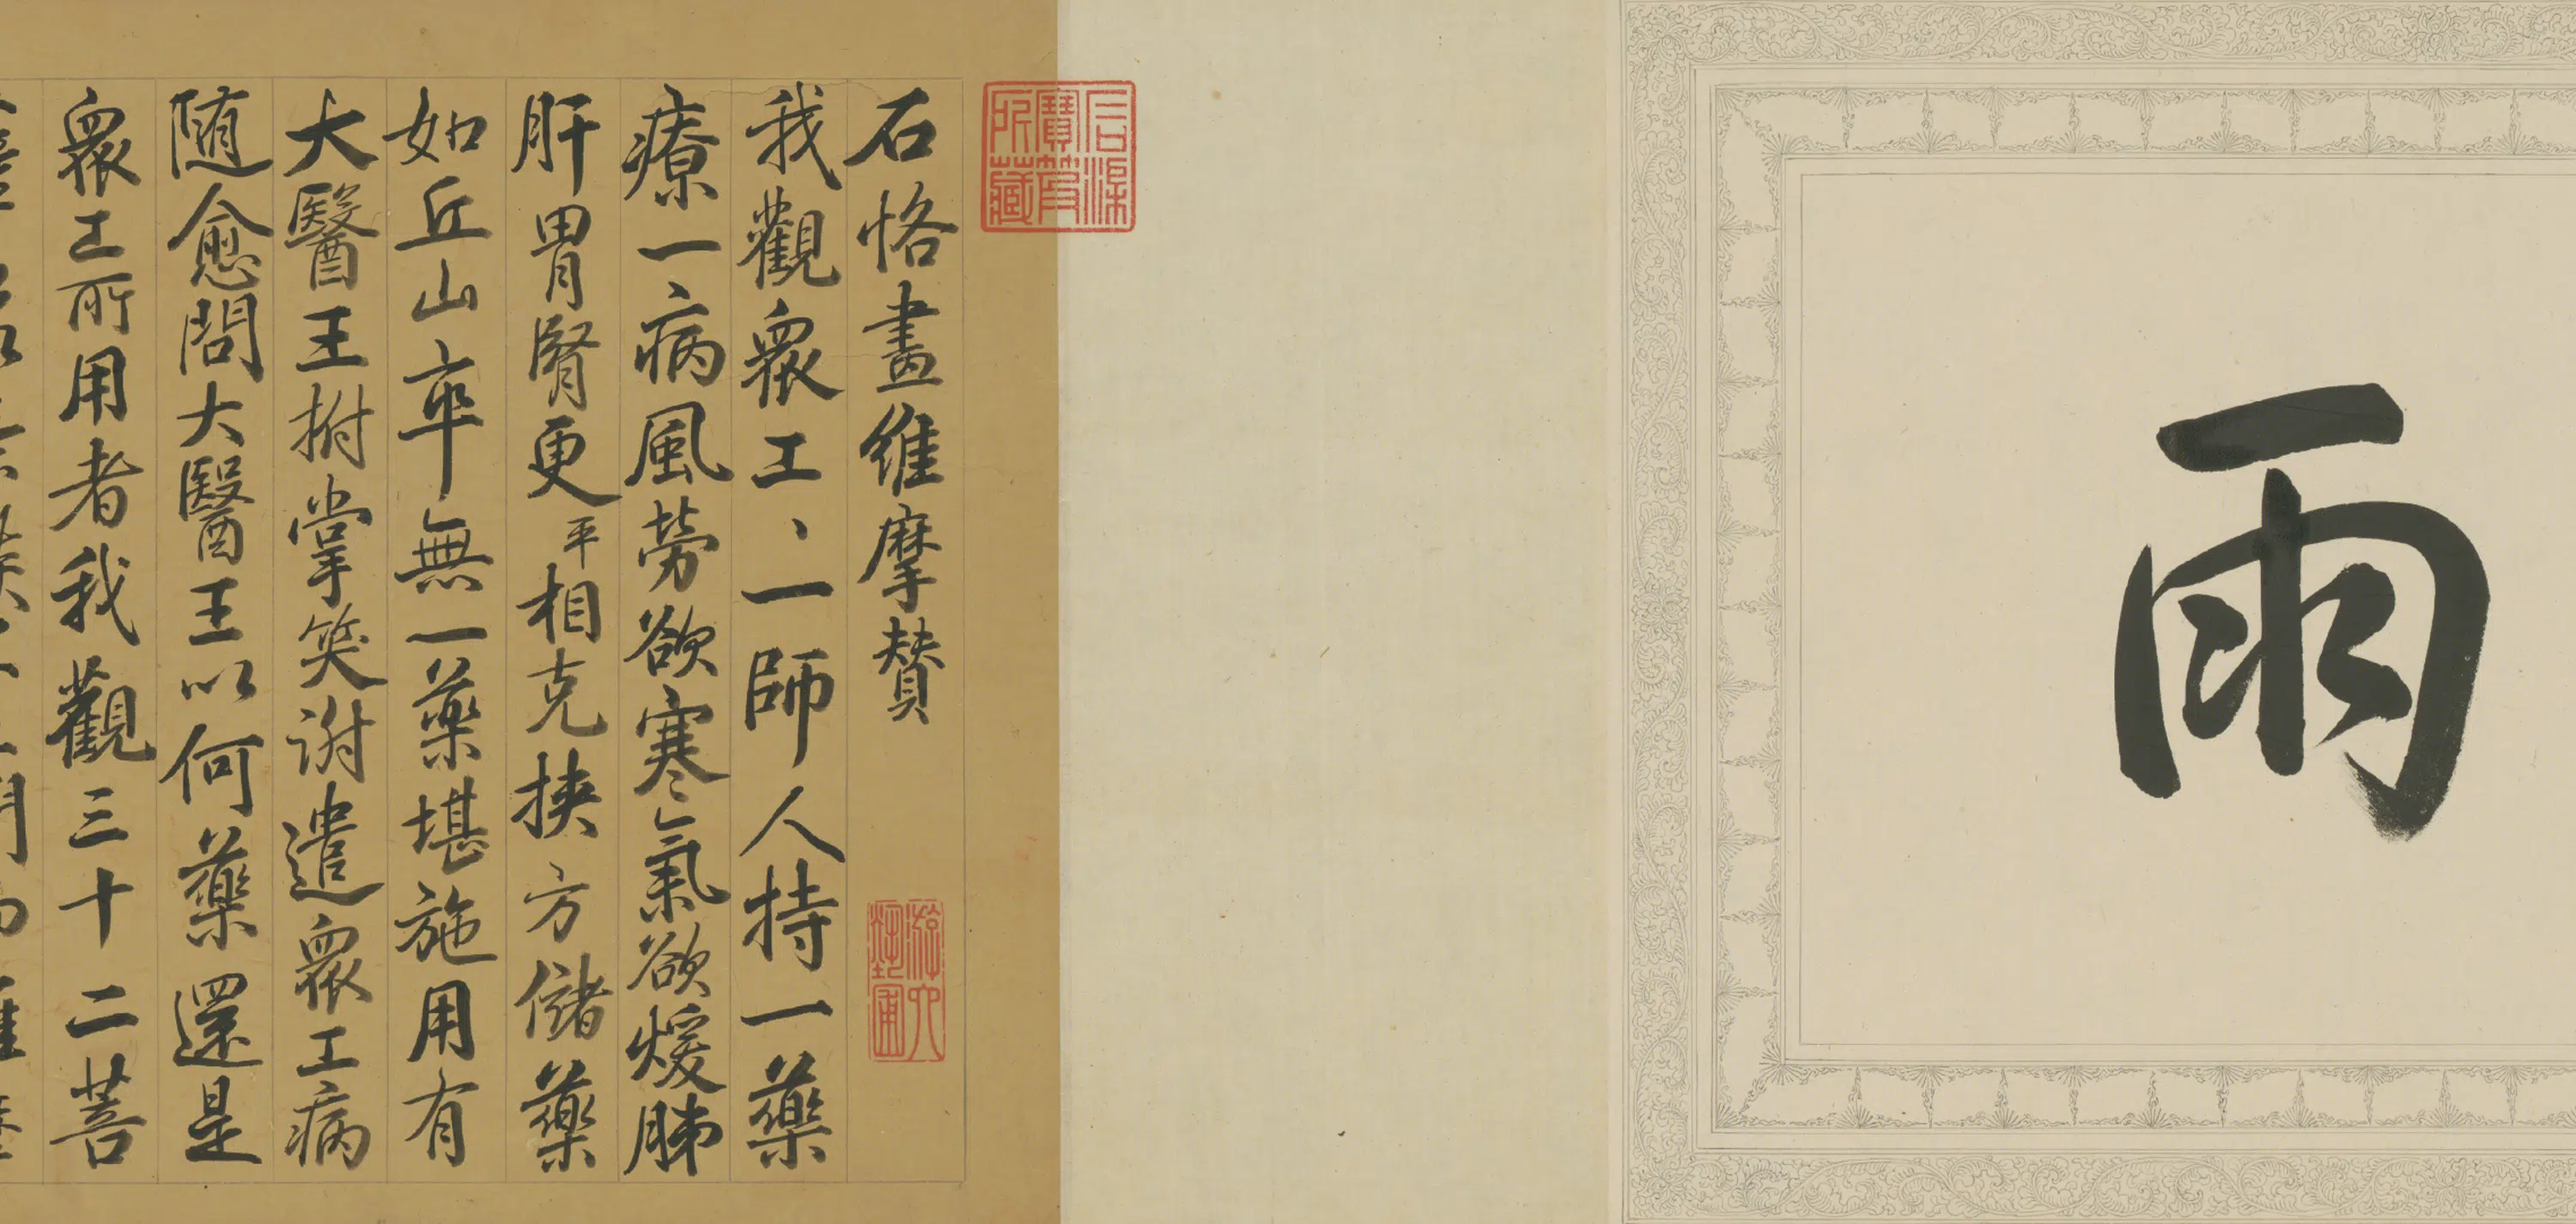 雨
石渠寶笈所藏
石恪畫維摩贊
我觀衆工、一師人持一藥
療一病風勞欲寒氣欲煖肺
肝胃腎更平相克挾方儲藥
如丘山卒無一藥堪施用有
大醫王拊掌笑謝遣衆工病
随愈問大醫王以何藥還是
衆工所用者我觀三十二菩